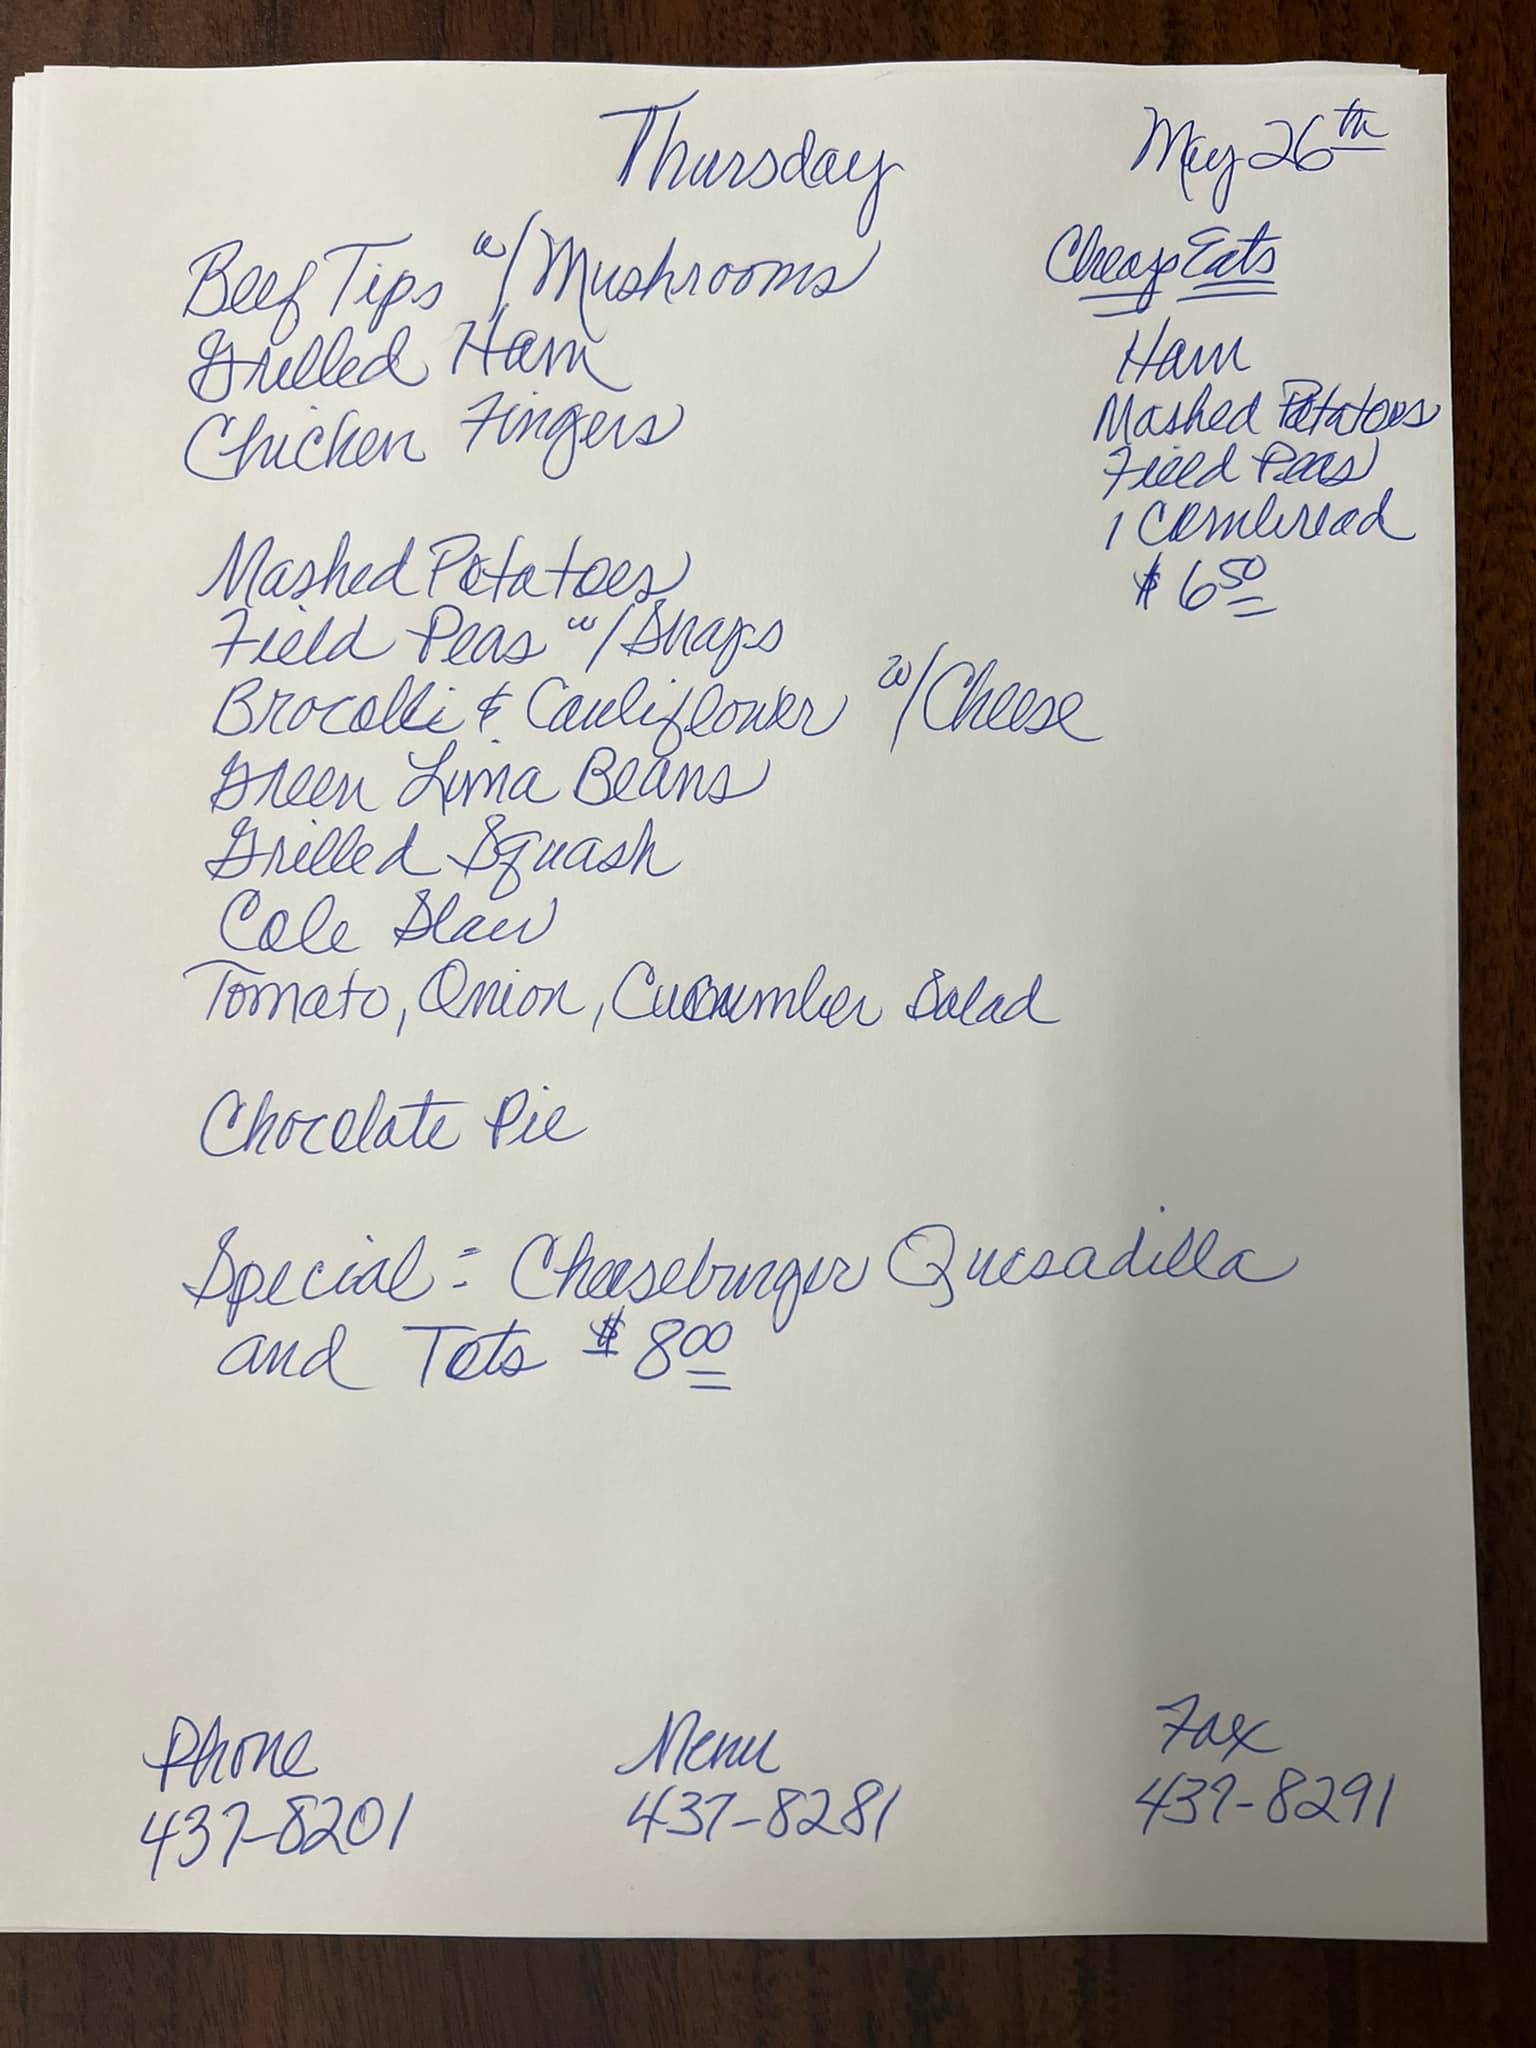 Thursday
May 26th
Beef Tips w/Mushrooms
Grilled Ham
Chicken Fingers
Cheap Eats
Ham
Mashed Potatoes
Field Peas
1 Cornbread
$6.50
Mashed Potatoes
Field Peas w/Snaps
Brocolli & Cauliflower w/Cheese
Green Lima Beans
Grilled Squash
Cole Slaw
Tomato, Onion, Cucumber Salad
Chocolate Pie
Special = Cheeseburger Quesadilla
and Tots $8.00
Phone
437-8201
Menu
437-8281
Fax
437-8291